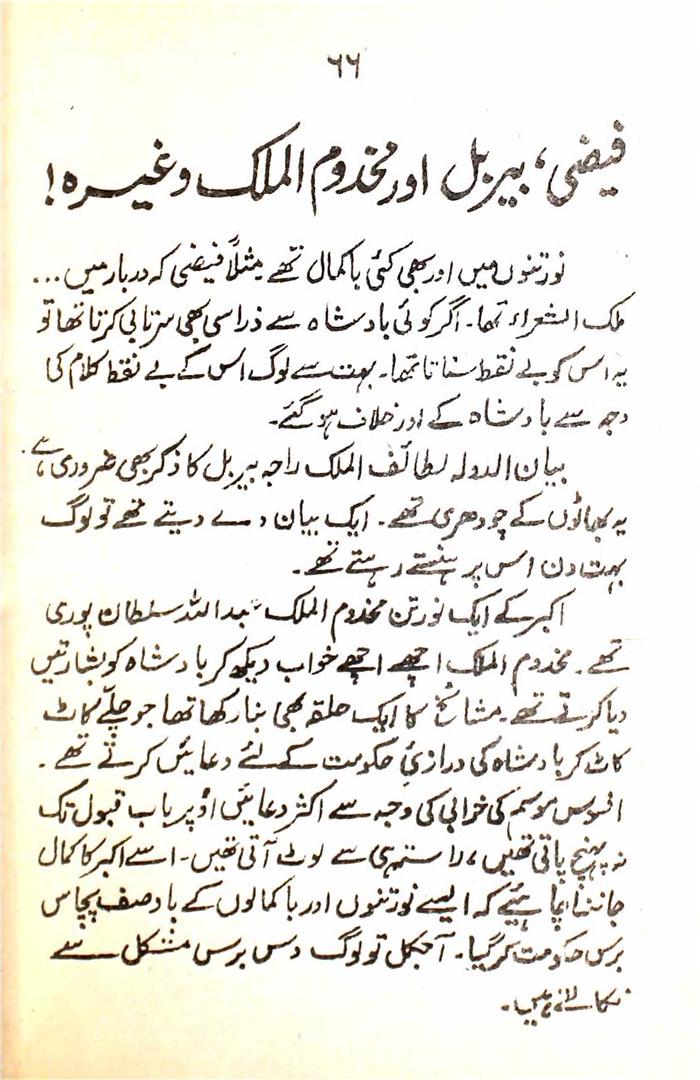 ۶۶
فیضی، بیربل اور مخدوم الملک وغیرہ!
نورتنوں میں اور بھی کئی باکمال تھے مثلاً فیضی کہ دربار میں...
ملک الشعراء تھا۔ اگر کوئی بادشاہ سے ذرا سی بھی سرتابی کرتا تھا تو
یہ اس کو بے نقط سناتا تھا۔ بہت سے لوگ اس کے بے نقط کلام کی
وجہ سے بادشاہ کے اور خلاف ہو گئے۔
بیان الدولہ لطائف الملک راجہ بیربل کا ذکر بھی ضروری ہے۔
یہ بھاٹوں کے چودھری تھے۔ ایک بیان دے دیتے تھے تو لوگ
بہت دن اس پر ہنستے رہتے تھے۔
اکبر کے ایک نورتن مخدوم الملک عبداللہ سلطان پوری
تھے۔ مخدوم الملک اچھے اچھے خواب دیکھ کر بادشاہ کو بشارتیں
دیا کرتے تھے۔ مشائخ کا ایک حلقہ بھی بنا رکھا تھا جو چلّے کاٹ
کاٹ کر بادشاہ کی درازئ حکومت کے لئے دعائیں کرتے تھے۔
افسوس موسم کی خرابی کی وجہ سے اکثر دعائیں اوپر باب قبول تک
نہ پہنچ پاتی تھیں، راستہ ہی سے لوٹ آتی تھیں۔ اسے اکبر کا کمال
جاننا چاہیئے کہ ایسے نورتنوں اور باکمالوں کے باوصف پچاس
برس حکومت کر گیا۔ آجکل تو لوگ دس برس مشکل سے
نکالتے ہیں۔